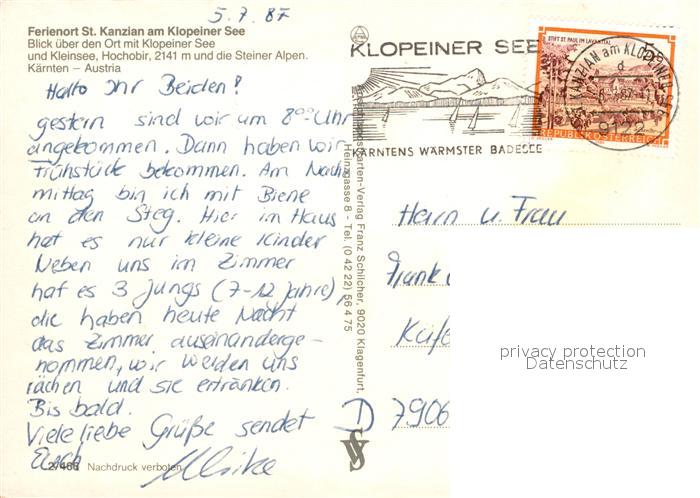 5.7.87
Ferienort St. Kanzian am Klopeiner See
Blick über den Ort mit Klopeiner See
und Kleinsee, Hochobir, 2141 m und die Steiner Alpen.
Kärnten – Austria
Hallo Ihr Beiden!
gestern sind wir um 8°° Uhr
angekommen. Dann haben wir
Frühstück bekommen. Am Nach
mittag bin ich mit Biene
an den Steg. Hier im Haus
hat es nur kleine Kinder
Neben uns im Zimmer
hat es 3 Jungs (7-12 Jahre),
die haben heute Nacht
das Zimmer auseinanderge-
nommen, wir werden uns
rächen und sie ertränken.
Bis bald.
Viele liebe Grüße sendet
Euch Ulrike
2/466 Nachdruck verboten
Postkarten-Verlag Franz Schilcher, 9020 Klagenfurt,
Heinzgasse 8 - Tel. (0 42 22) 56 4 75
KLOPEINER SEE
KÄRNTENS WÄRMSTER BADESEE
STIFT ST. PAUL IM LAVANTTAL
5
REPUBLIK ÖSTERREICH
ST. KANZIAN am KLOPEINER SEE
d
9122
Herrn u. Frau
Frank
D 7906
privacy protection
Datenschutz